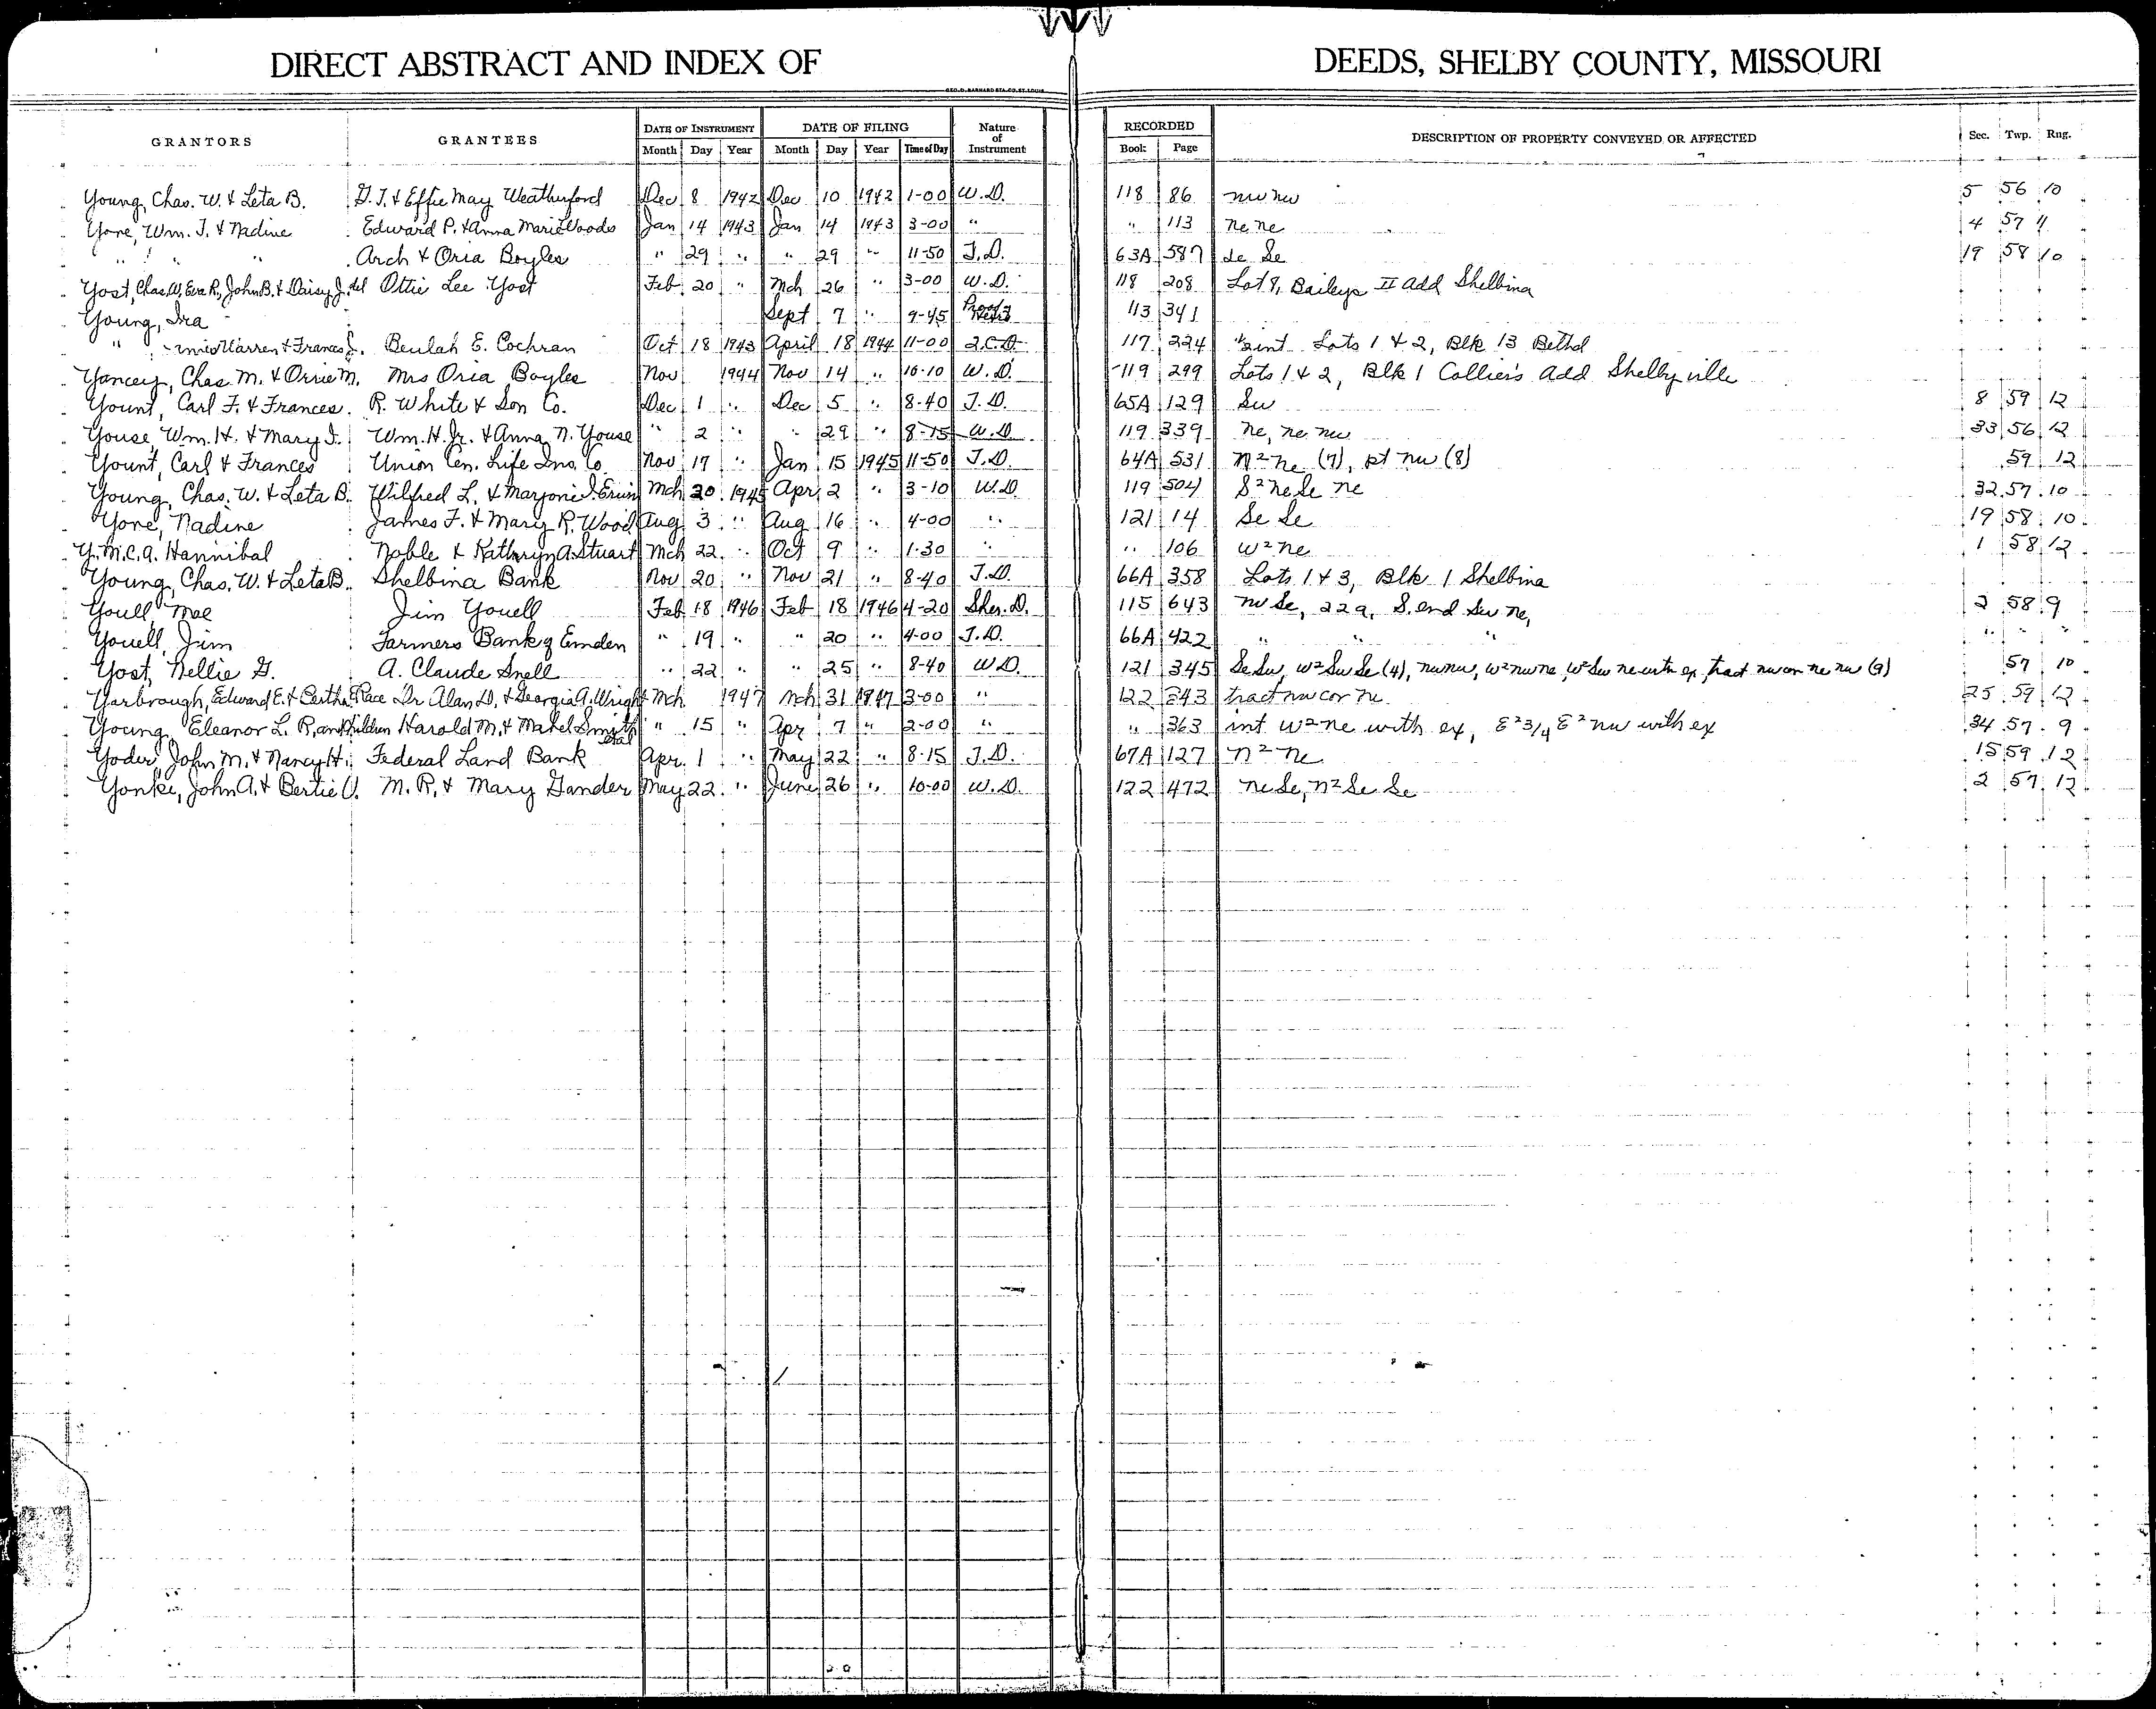 DIRECT ABSTRACT AND INDEX OF DEEDS, SHELBY COUNTY, MISSOURI
GEO. D. BARNARD STA. CO. ST. LOUIS
GRANTORS GRANTEES DATE OF INSTRUMENT DATE OF FILING Nature of Instrument RECORDED DESCRIPTION OF PROPERTY CONVEYED OR AFFECTED Sec. Twp. Rng.
Month Day Year Month Day Year Time of Day Book Page
Young, Chas. W. & Leta B. G. T. & Effie May Weatherford Dec 8 1942 Dec 10 1942 1-00 W.D. 118 86 nw nw 5 56 10
Yore, Wm. J. & Nadine Edward P. & Anna Marie Woods Jan 14 1943 Jan 14 1943 3-00 " " 113 ne ne 4 57 11
" " " Arch & Oria Boyles " 29 " " 29 " 11-50 T.D. 63A 587 se Se 19 58 10
Yost, Chas. W. Eva R., John B. & Daisy J. Ottie Lee Yost Feb 20 " Mch 26 " 3-00 W.D. 118 208 Lot 9, Baileys II Add Shelbina
Young, Ira Sept 7 " 9-45 Proof 113 341
" Warren & Frances J. Beulah E. Cochran Oct 18 1943 April 18 1944 11-00 Q.C.D. 117 224 int Lots 1 & 2, Blk 13 Bethel
Yancey, Chas. M. & Orrie M. Mrs Oria Boyles Nov 1944 Nov 14 " 10-10 W.D. 119 299 Lots 1 & 2, Blk 1 Collier's Add Shelbyville
Yount, Carl F. & Frances R. White & Son Co. Dec 1 " Dec 5 " 8-40 T.D. 65A 129 Sw 8 59 12
Youse, Wm. H. & Mary J. Wm. H. Jr. & Anna N. Youse " 2 " " 29 " 8-15 W.D. 119 339 ne, ne nw 33 56 12
Yount, Carl & Frances Union Cen. Life Ins. Co. Nov 17 " Jan 15 1945 11-50 T.D. 64A 531 N² ne (7), pt nw (8) 59 12
Young, Chas. W. & Leta B. Wilfred L. & Marjorie J. Erwin Mch 20 1945 Apr 2 " 3-10 W.D. 119 504 S² ne Se ne 32 57 10
Yore, Nadine James F. & Mary R. Wood Aug 3 " Aug 16 " 4-00 " 121 14 Se Se 19 58 10
Y.M.C.A. Hannibal Noble & Kathryn A. Stuart Mch 22 " Oct 9 " 1-30 " " 106 W² ne 1 58 12
Young, Chas. W. & Leta B. Shelbina Bank Nov 20 " Nov 21 " 8-40 T.D. 66A 358 Lots 1 & 3, Blk 1 Shelbina
Youll, Mae Jim Youell Feb 18 1946 Feb 18 1946 4-20 Sher. D. 115 643 nw Se, 22 a, S. end Sw ne, 2 58 9
Youell, Jim Farmers Bank of Emden " 19 " " 20 " 4-00 T.D. 66A 422 " " " " " "
Yost, Nellie G. A. Claude Snell " 22 " " 25 " 8-40 W.D. 121 345 Se Sw, W² Sw Se (4), nw nw, W² nw ne, W² Sw ne with ex, tract nw cor ne nw (9) 57 10
Yarbrough, Edward E. & Bertha Race Dr Alan D. & Georgia A. Wright Mch 1947 Mch 31 1947 3-00 " 122 343 tract nw cor ne 25 59 12
Young, Eleanor L. R. and children Harold M. & Mabel Smith etal " 15 " Apr 7 " 2-00 " " 363 int W² ne with ex, E² 3/4 E² nw with ex 34 57 9
Yoder, John M. & Nancy H. Federal Land Bank Apr. 1 " May 22 " 8-15 T.D. 67A 127 N² ne 15 59 12
Yonke, John A. & Bertie V. M. R. & Mary Gander May 22 " June 26 " 10-00 W.D. 122 472 ne Se, N² Se Se 2 57 12